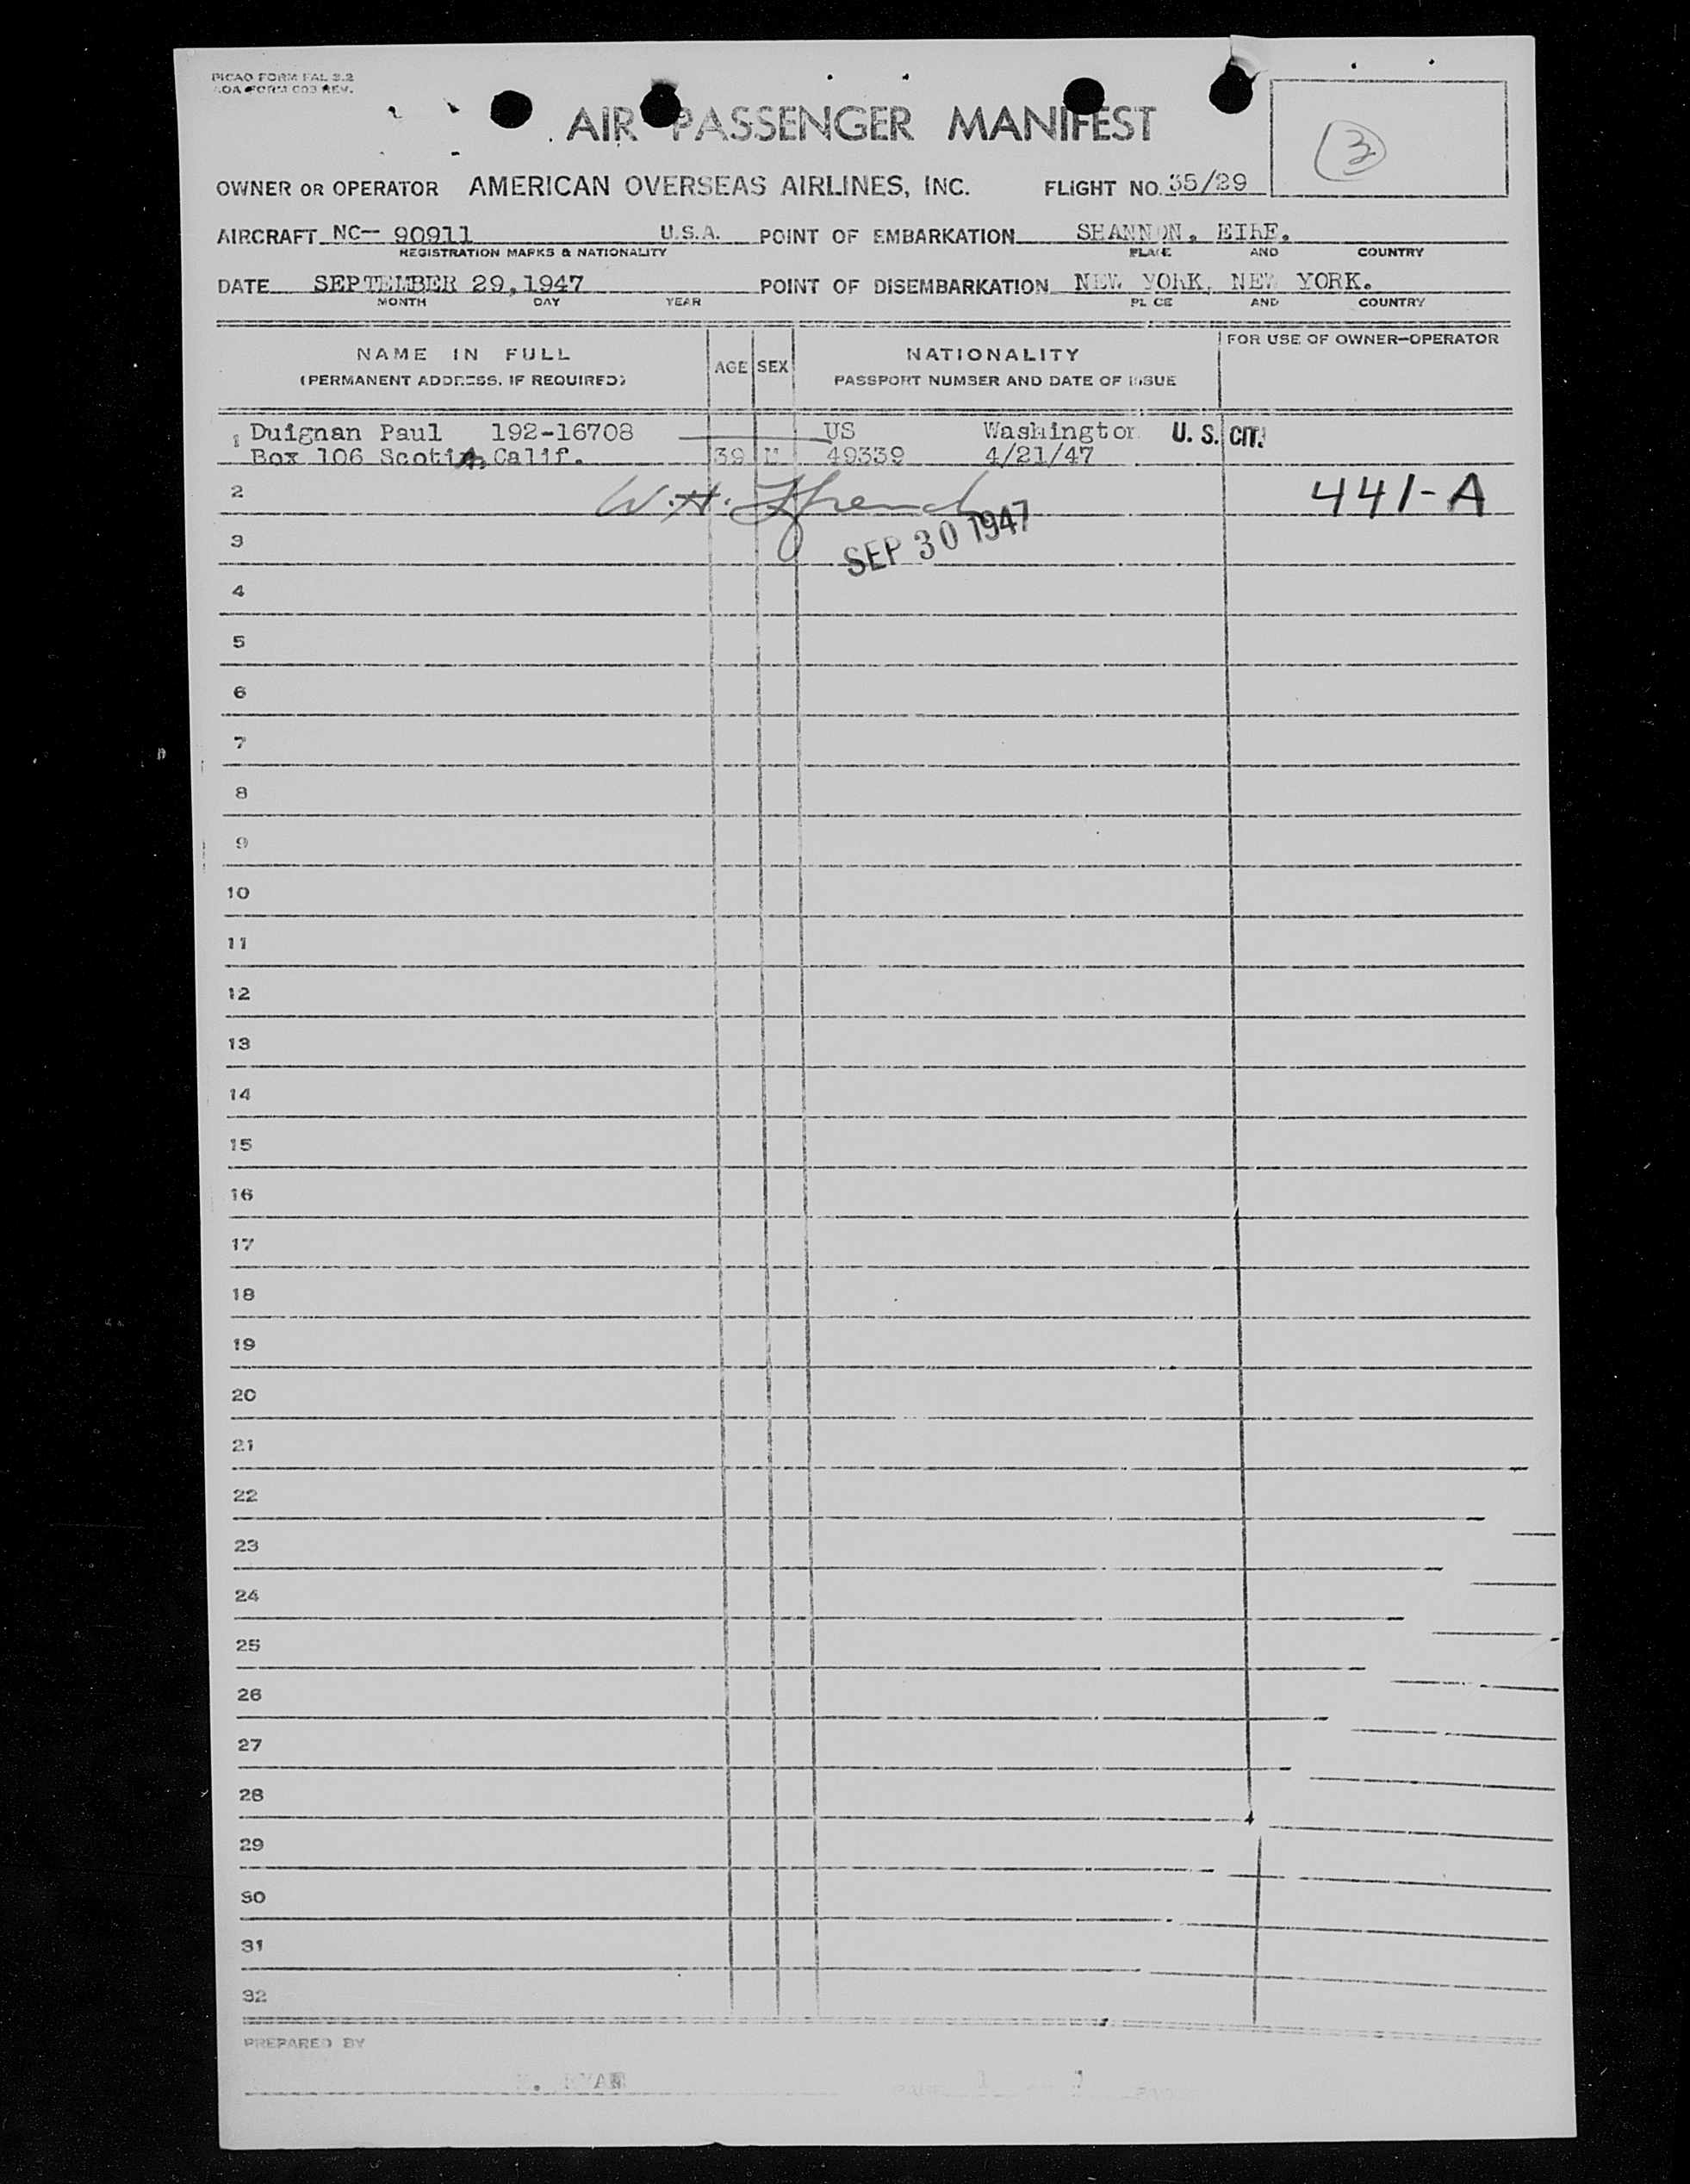 PICAO FORM FAL 3.2
AOA FORM 003 REV.
AIR PASSENGER MANIFEST
3
OWNER OR OPERATOR AMERICAN OVERSEAS AIRLINES, INC. FLIGHT NO. 35/29
AIRCRAFT NC-- 90911 U.S.A. POINT OF EMBARKATION SHANNON, EIRE.
REGISTRATION MARKS & NATIONALITY PLACE AND COUNTRY
DATE SEPTEMBER 29,1947 POINT OF DISEMBARKATION NEW YORK, NEW YORK.
MONTH DAY YEAR PLACE AND COUNTRY
NAME IN FULL AGE SEX NATIONALITY FOR USE OF OWNER-OPERATOR
(PERMANENT ADDRESS, IF REQUIRED) PASSPORT NUMBER AND DATE OF ISSUE
1 Duignan Paul 192-16708 US Washington U. S. CIT.
Box 106 Scotia, Calif. 39 M 49339 4/21/47
2 W. H. 441-A
3 SEP 30 1947
4
5
6
7
8
9
10
11
12
13
14
15
16
17
18
19
20
21
22
23
24
25
26
27
28
29
30
31
32
PREPARED BY
RYAN 1 1